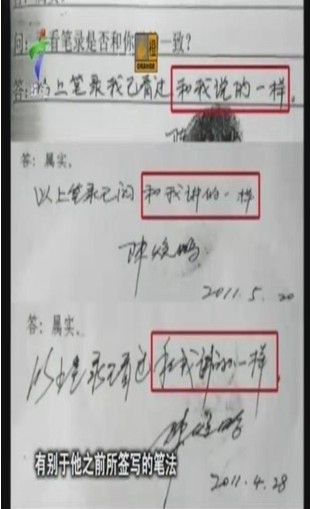 问：看笔录是否和你 一致？
答：以上笔录我已看过 和我说的一样。
陈
答：属实。
以上笔录已阅 和我讲的一样
陈
2011.5.20
答：属实、
以上笔录已看过 和我讲的一样，
陈
2011.4.28
有别于他之前所签写的笔法